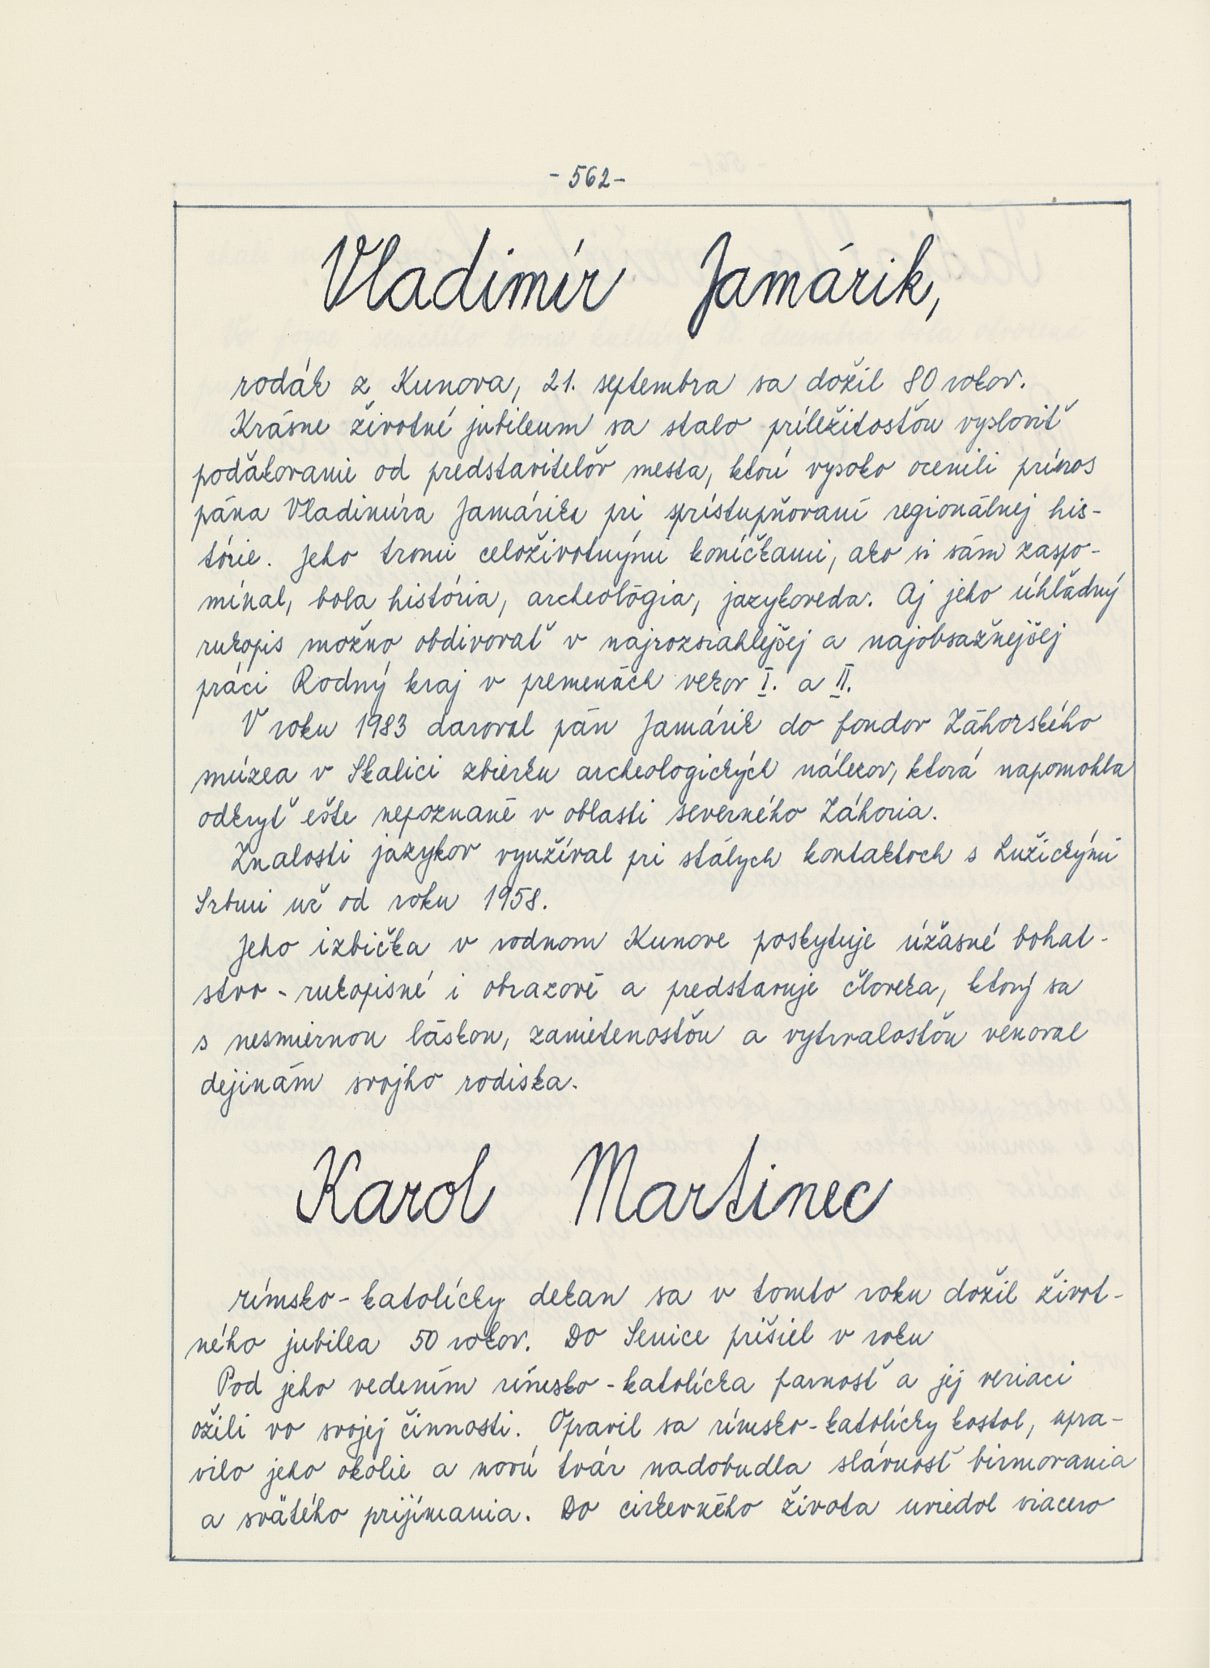 - 562 -
Vladimír Jamárik,
rodák z Kunova, 21. septembra sa dožil 80 rokov.
Krásne životné jubileum sa stalo príležitosťou vysloviť
poďakovanie od predstaviteľov mesta, ktorí vysoko ocenili prínos
pána Vladimíra Jamárika pri sprístupňovaní regionálnej his-
tórie. Jeho tromi celoživotnými koníčkami, ako si sám zaspo-
mínal, bola história, archeológia, jazykoveda. Aj jeho úhľadný
rukopis možno obdivovať v najrozsiahlejšej a najobsažnejšej
práci Rodný kraj v premenách vekov I. a II.
V roku 1983 daroval pán Jamárik do fondov Záhorského
múzea v Skalici zbierku archeologických nálezov, ktorá napomohla
odkryť ešte nepoznané v oblasti severného Záhoria.
Znalosti jazykov využíval pri stálych kontaktoch s Lužickými
Srbmi už od roku 1958.
Jeho izbička v rodnom Kunove poskytuje úžasné bohat-
stvo - rukopisné i obrazové a predstavuje človeka, ktorý sa
s nesmiernou láskou, zanietenosťou a vytrvalosťou venoval
dejinám svojho rodiska.
Karol Martinec
rímsko-katolícky dekan sa v tomto roku dožil život-
ného jubilea 50 rokov. Do Senice prišiel v roku
Pod jeho vedením rímsko-katolícka farnosť a jej veriaci
ožili vo svojej činnosti. Opravil sa rímsko-katolícky kostol, upra-
vilo jeho okolie a novú tvár nadobudla slávnosť birmovania
a svätého prijímania. Do cirkevného života uviedol viacero